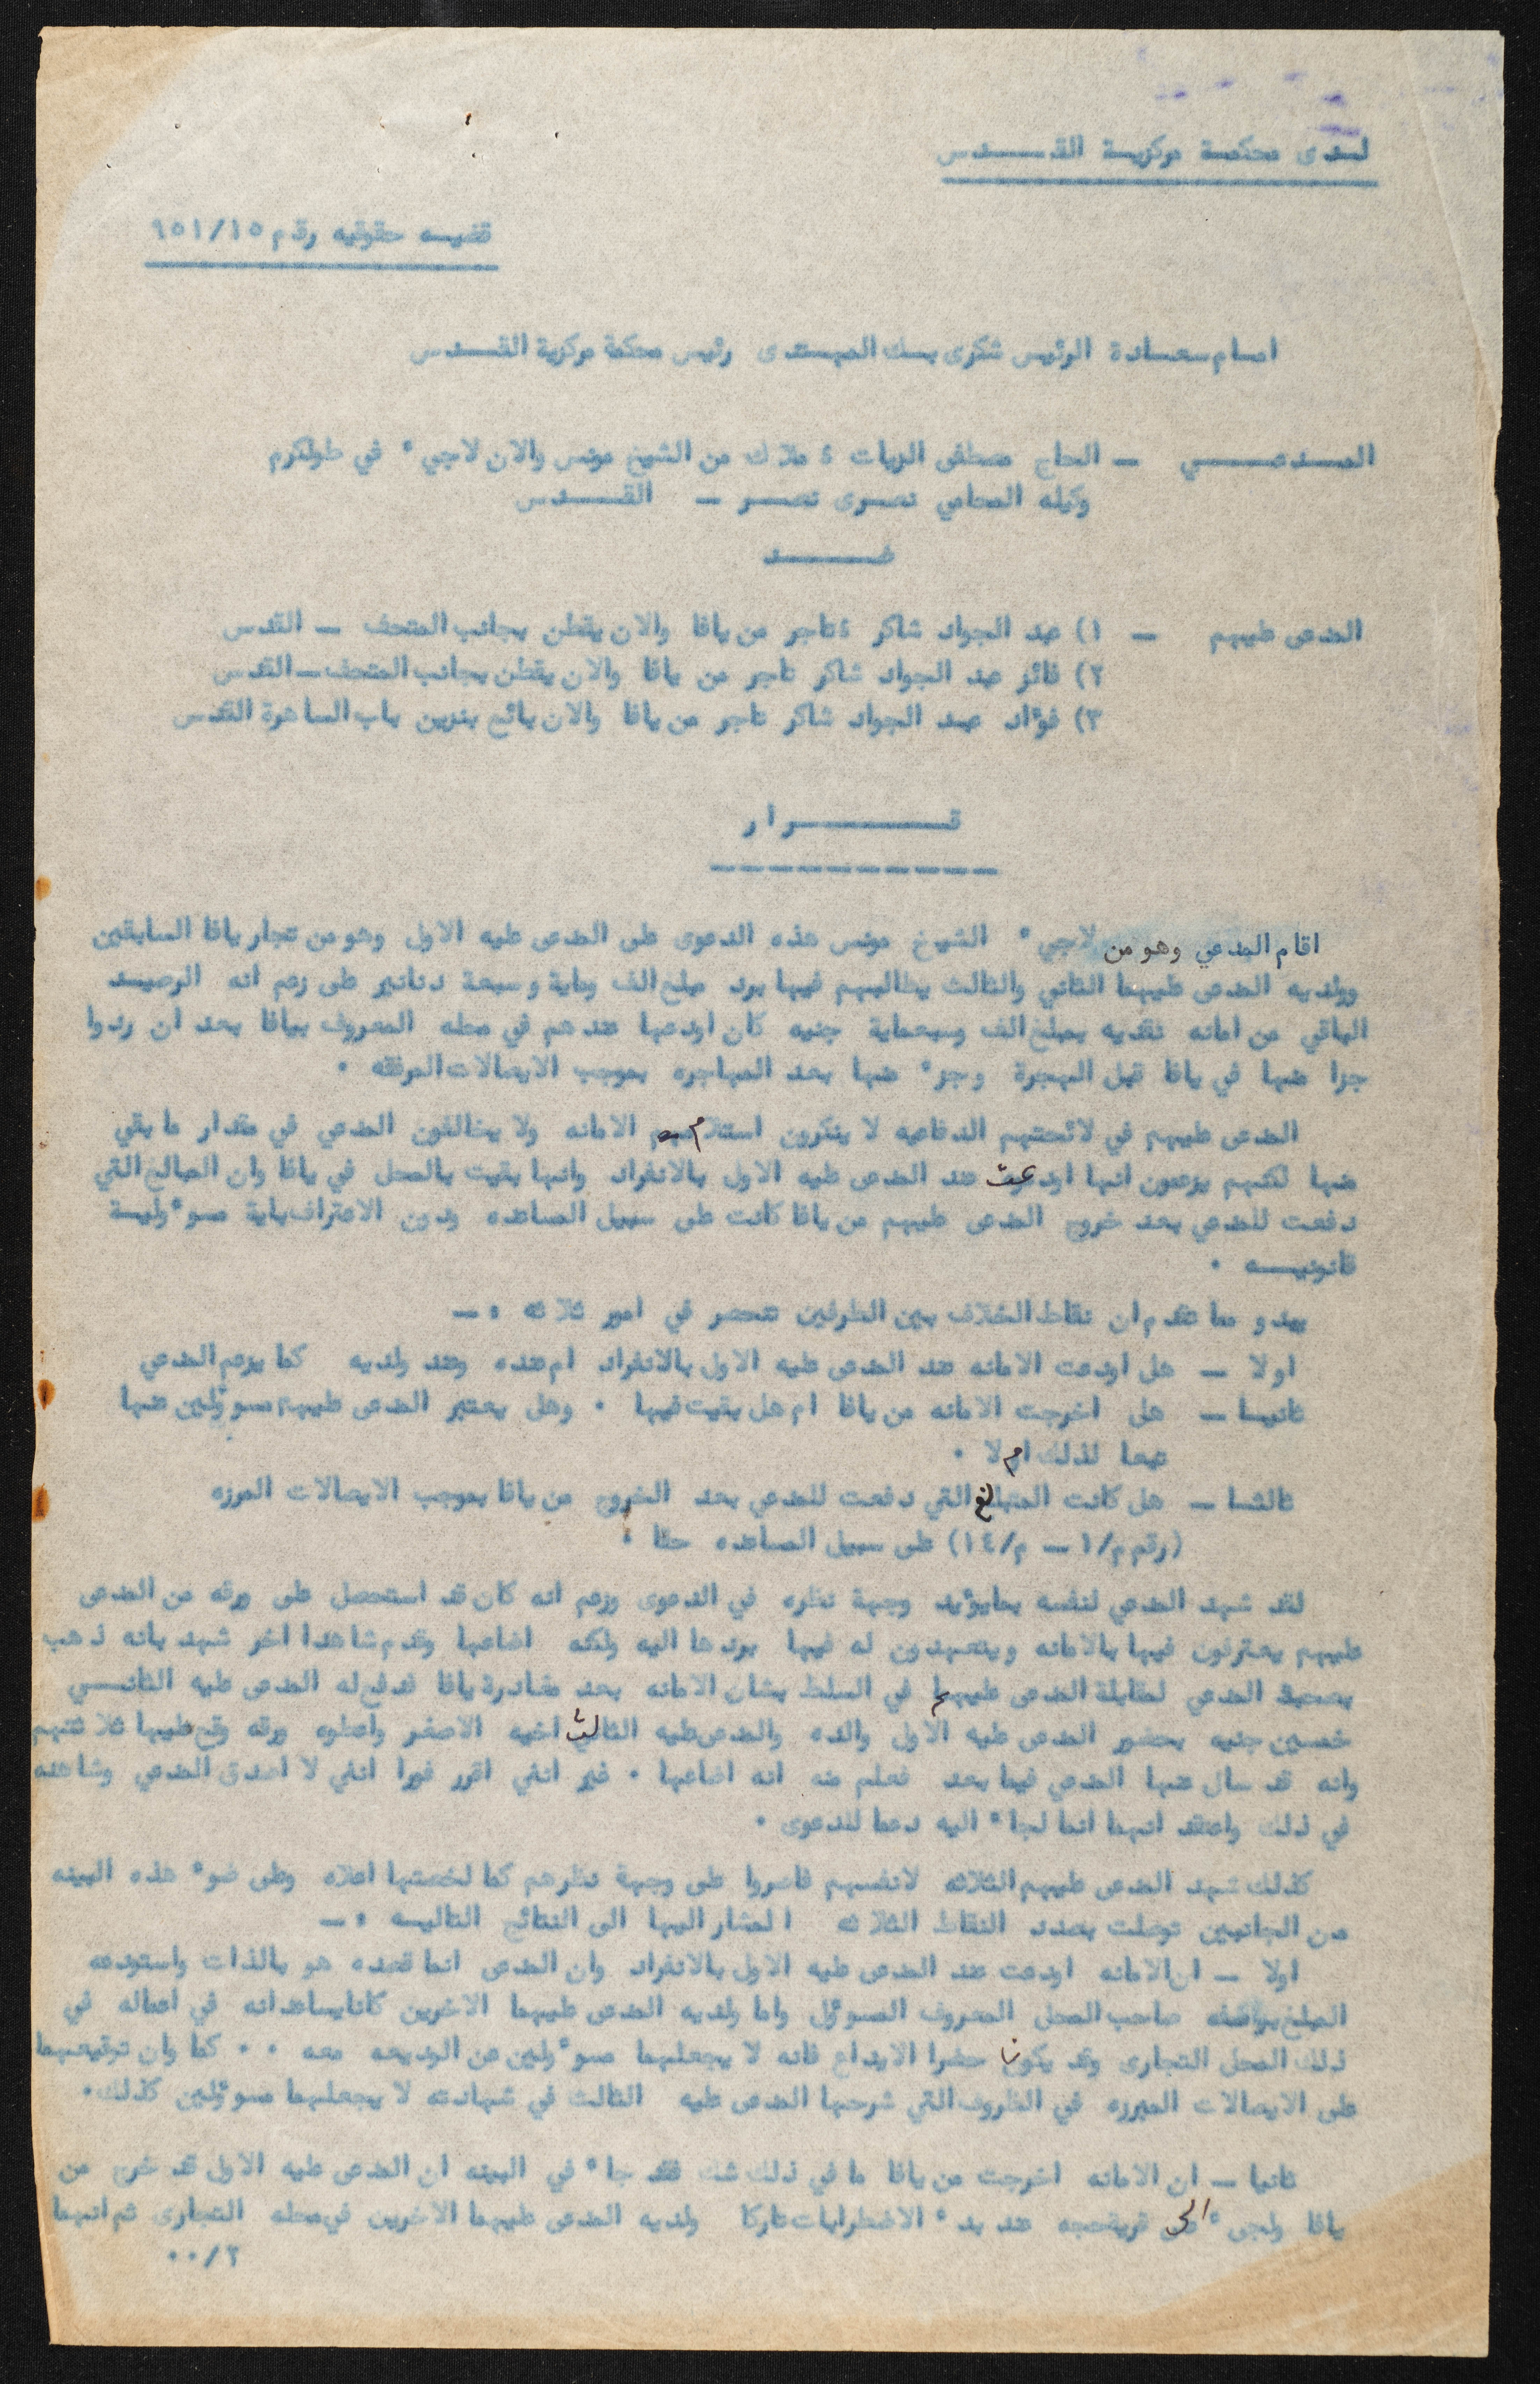 لـدى محكمـة مركزيـة القـــدس
قضيـه حقوقيه رقم ٩٥١/١٥
امـام سعـادة الرئيس شكرى بـك المهـتدى رئيس محكمة مركزية القـــدس
المـدعــــي — الحاج مصطفى الزيات ؛ ملاك من الشيخ مونس والان لاجيء في طولكرم
وكيله المحامي نصـرى نصـــر — القـــدس
ضــــد
المدعى عليهم — ١) عبد الجواد شاكر ؛ تاجر من يافا والان يقطن بجانب المتحف — القدس
٢) فائز عبد الجواد شاكر تاجر من يافا والان يقطن بجانب المتحف — القدس
٣) فؤاد عبد الجواد شاكر تاجر من يافا والان بائع بنزين باب الساهرة القدس
قــــــرار
اقام المدعي وهو من لاجيء الشيخ مونس هذه الدعوى على المدعى عليه الاول وهو من تجار يافا السابقين
وولديه المدعى عليهما الثاني والثالث يطالبهم فيها برد مبلغ الف وماية وسبعة دنانير على زعم انه الرصيـد
الباقي من امانه نقديه بمبلغ الف وسبعماية جنيه كان اودعها عندهم في محله المعروف بيافا بعد ان ردوا
جزا منها في يافا قبل الهجرة وجزء منها بعد المهاجره بموجب الايصالات المرفقه .
المدعى عليهم في لائحتهم الدفاعيه لا ينكرون استلامهم الامانه ولا يخالفون المدعي في مقدار ما بقي
منها لكنهم يزعمون انها اودعت عند المدعى عليه الاول بالانفراد وانها بقيت بالمحل في يافا وان المبالغ التي
دفعت للمدعي بعد خروج المدعى عليهم من يافا كانت على سبيل المساعده ودون الاعتراف باية مسوءوليـة
قانونيـــه .
يبدو مما تقدم ان نقاط الخلاف بين الطرفين تنحصر في امور ثلاثه :—
اولا — هل اودعت الامانه عند المدعى عليه الاول بالانفراد ام عنده وعند ولديه كما يزعم المدعي
ثانيـا — هل اخرجت الامانه من يافا ام هل بقيت فيها . وهل يعتبر المدعى عليهم مسوءولين عنها
تبعا لذلك ام لا .
ثالثـا — هل كانت المبالغ التي دفعت للمدعي بعد الخروج من يافا بموجب الايصالات المبرزه
(رقم م/١ — م/١٤) على سبيل المساعده حقا .
لقد شهد المدعي لنفسه بما يؤيد وجهة نظره في الدعوى وزعم انه كان قد استحصل على ورقه من المدعى
عليهم يعترفون فيها بالامانه ويتعهدون له فيها بردها اليه ولكنه اضاعها وقدم شاهدا اخر شهد بانه ذهب
بصحبة المدعي لمقابلة المدعى عليهم في السلط بشان الامانه بعد مغادرة يافا فدفع له المدعى عليه الثانــي
خمسين جنيه بحضور المدعى عليه الاول والده والمدعى عليه الثالث اخيه الاصغر واعطوه ورقه وقع عليها ثلاثتهم
وانه قد سال عنها المدعي فيما بعد فعلم منه انه اضاعها . غير انني اقرر فورا انني لا اصدق المدعي وشاهده
في ذلك واعتقد انهما انما لجاء اليه دعما للدعوى .
كذلك شهد المدعى عليهم الثلاثه لانفسهم فاصروا على وجهة نظرهم كما لخصتها اعلاه وعلى ضوء هذه البينه
من الجانبين توصلت بصدد النقاط الثلاثه المشار اليها الى النتائج التاليـه :—
اولا — ان الامانه اودعت عند المدعى عليه الاول بالانفراد وان المدعى انما قصده هو بالذات واستودعه
المبلغ بوصفه صاحب المحل المعروف المسوءول واما ولديه المدعى عليهما الاخرين كانا يساعدانه في اعماله في
ذلك المحل التجارى وقد يكونا حضرا الايداع فانه لا يجعلهما مسوءولين عن الوديعه معه .. كما وان توقيعهما
على الايصالات المبرزه في الظروف التي شرحها المدعى عليه الثالث في شهادته لا يجعلهما مسوءولين كذلك.
ثانيا — ان الامانه اخرجت من يافا ما في ذلك شك فقد جاء في البينه ان المدعى عليه الاول قد خرج من
يافا ولجىء الى قرية حجه عند بدء الاضطرابات تاركا ولديه المدعى عليهما الاخرين في محله التجارى ثم انهما
٢/..